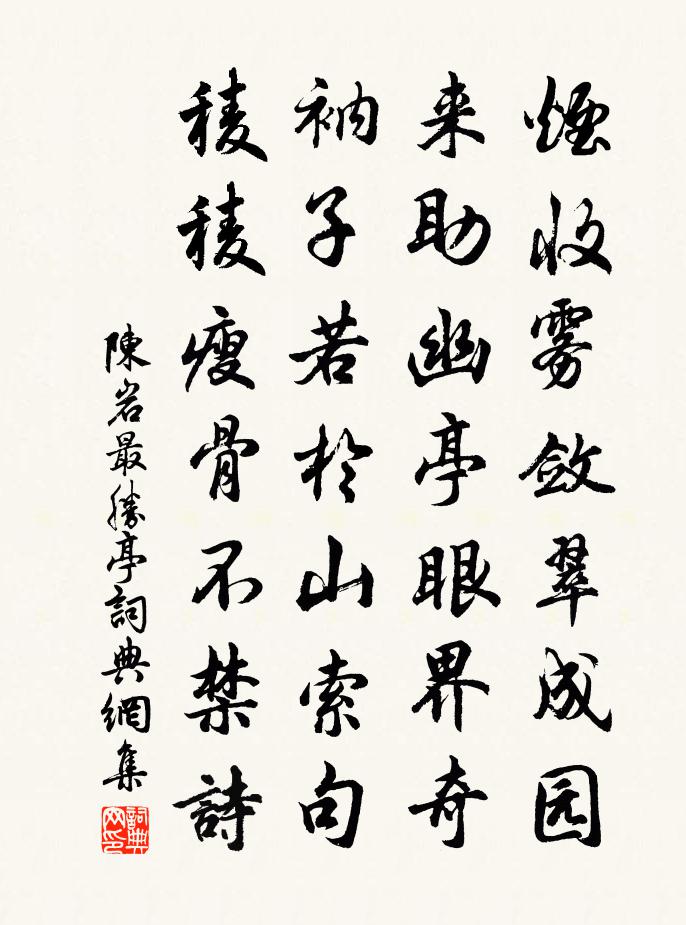 煙收雾斂翠成园
来助幽亭眼界奇
衲子若於山索句
稜稜瘦骨不禁詩
陳岩最勝亭詞典網集
詞典网印